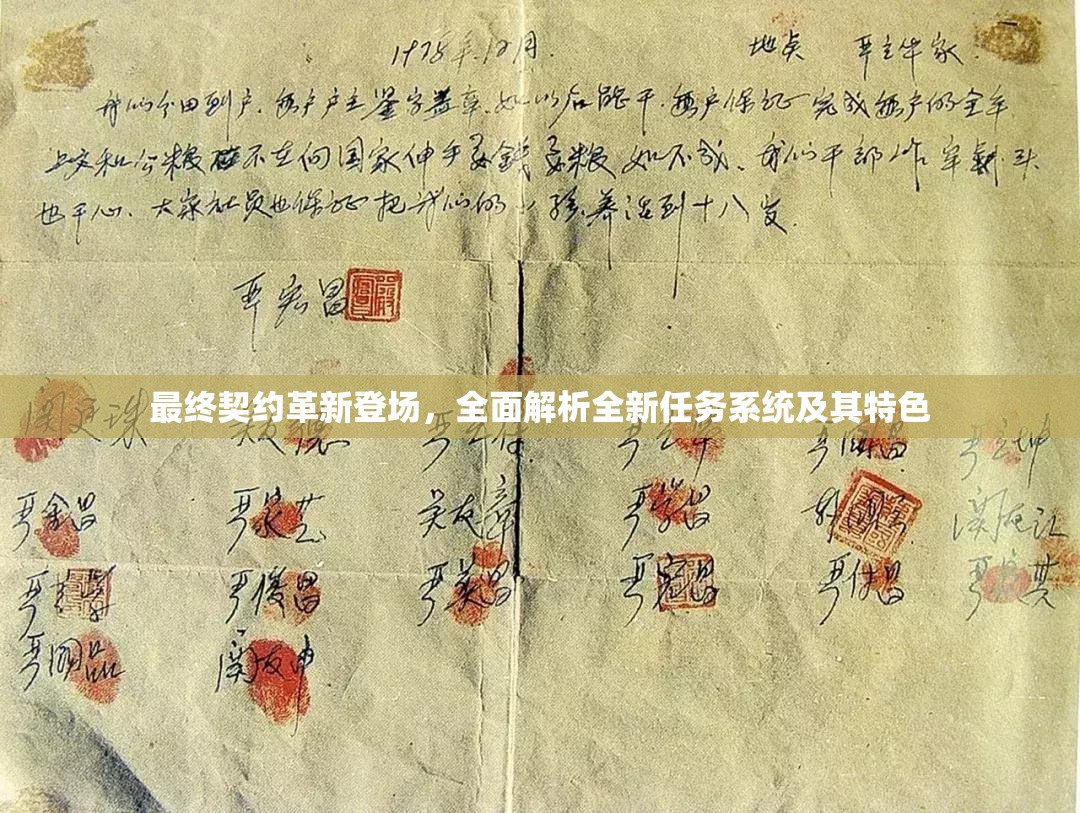 1978年12月. 地点 严立华家.
我们分田到户.每户户主签字盖章.如以后能干.每户保证完成每户的全年
上交和公粮不在向国家伸手要钱要粮如不成.我们干部作牢剎头
也干心.大家社员也保证把我们的小孩养活到十八岁.
严宏昌
最终契约革新登场，全面解析全新任务系统及其特色
关廷珠 关友德 严立符 严立华 严国昌 严立坤
严金昌 严家芝 吴友璋 严学昌 韩国云 关友江
严立学 严俊昌 严美昌 严宏昌 严付昌 严家其
严国品 关友申